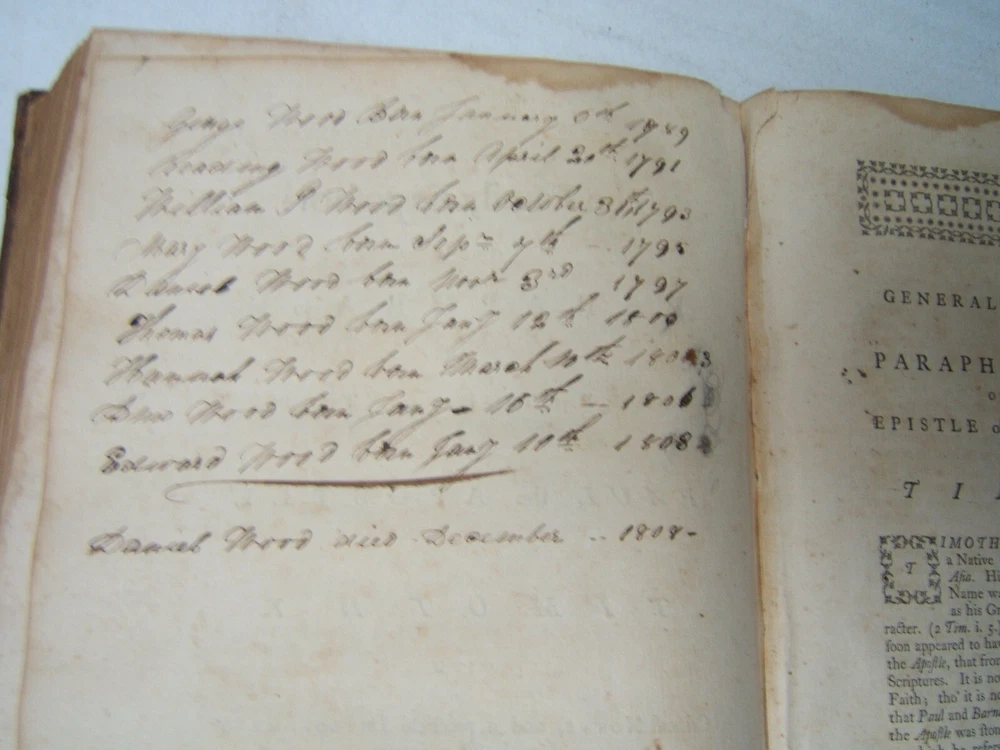 George Wood Born January 6th 1789
Reading Wood born April 20th 1791
William P Wood born October 3th 1793
Mary Wood born Sepr 7th 1795
Daniel Wood born Novr 3rd 1797
Thomas Wood born Jany 12th 1800
Hannah Wood born March 10th 1803
Wood born Jany 16th 1806
Edward Wood born Jany 10th 1808
Daniel Wood died December 1808
GENERAL
PARAPH
EPISTLE
T I
TIMOTH
a Native
Asia. Hi
Name wa
as his Gr
racter. (2 Tim. i. 5.
soon appeared to ha
the Apostle, that fro
Scriptures. It is no
Faith; tho' it is n
that Paul and Barn
the Apostle was ston